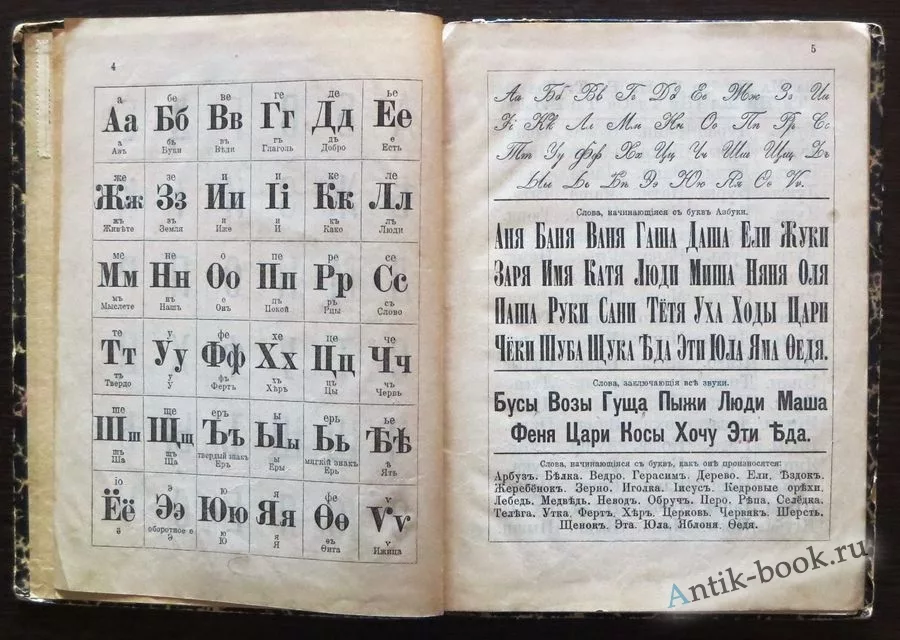 4
а бе ве ге де ье
Аа Бб Вв Гг Дд Ее
а бъ въ гъ дъ е
Азъ Буки Вѣди Глаголь Добро Есть
же зе и и ке ле
Жж Зз Ии Іі Кк Лл
жъ зъ и и къ лъ
Живѣте Земля Иже И Како Люди
ме не о пе ре се
Мм Нн Оо Пп Рр Сс
мъ нъ о пъ ръ съ
Мыслете Нашъ Онъ Покой Рцы Слово
те у фе хе це че
Тт Уу Фф Хх Цц Чч
тъ у фъ хъ цъ чъ
Твердо У Фертъ Хѣръ Цы Червь
ше ще еръ ы ерь ье
Шш Щщ Ъъ Ыы Ьь Ѣѣ
шъ щъ твердый знакъ ы мягкій знакъ е
Ша Ща Еръ Еры Ерь Ять
іо э ю я фе ѵ
Ёё Ээ Юю Яя Ѳѳ Ѵѵ
ё оборотное э ю я ѳъ ѵ
Э Ю Я Ѳита Ижица
5
Аа Бб Вв Гг Дд Ее Жж Зз Ии
Іі Кк Лл Мм Нн Оо Пп Рр Сс
Тт Уу Фф Хх Цц Чч Шш Щщ Ъъ
Ыы Ьь Ѣѣ Ээ Юю Яя Ѳѳ Ѵѵ.
Слова, начинающіяся съ буквъ Азбуки.
Аня Баня Ваня Гаша Даша Ели Жуки
Заря Имя Катя Люди Миша Няня Оля
Паша Руки Сани Тётя Уха Ходы Цари
Чёки Шуба Щука Ѣда Эти Юла Яма Ѳедя.
Слова, заключающія всѣ звуки.
Бусы Возы Гуща Пыжи Люди Маша
Феня Цари Косы Хочу Эти Ѣда.
Слова, начинающіяся съ буквъ, какъ онѣ произносятся:
Арбузъ. Бѣлка. Ведро. Герасимъ. Дерево. Ели. Ѣздокъ.
Жеребёнокъ. Зерно. Иголка. Іисусъ. Кедровые орѣхи.
Лебедь. Медвѣдь. Неводъ. Обручъ. Перо. Рѣпа. Селёдка.
Телѣга. Утка. Фертъ. Хѣръ. Церковь. Червякъ. Шерсть.
Щенокъ. Эта. Юла. Яблоня. Ѳедя.
Antik-book.ru